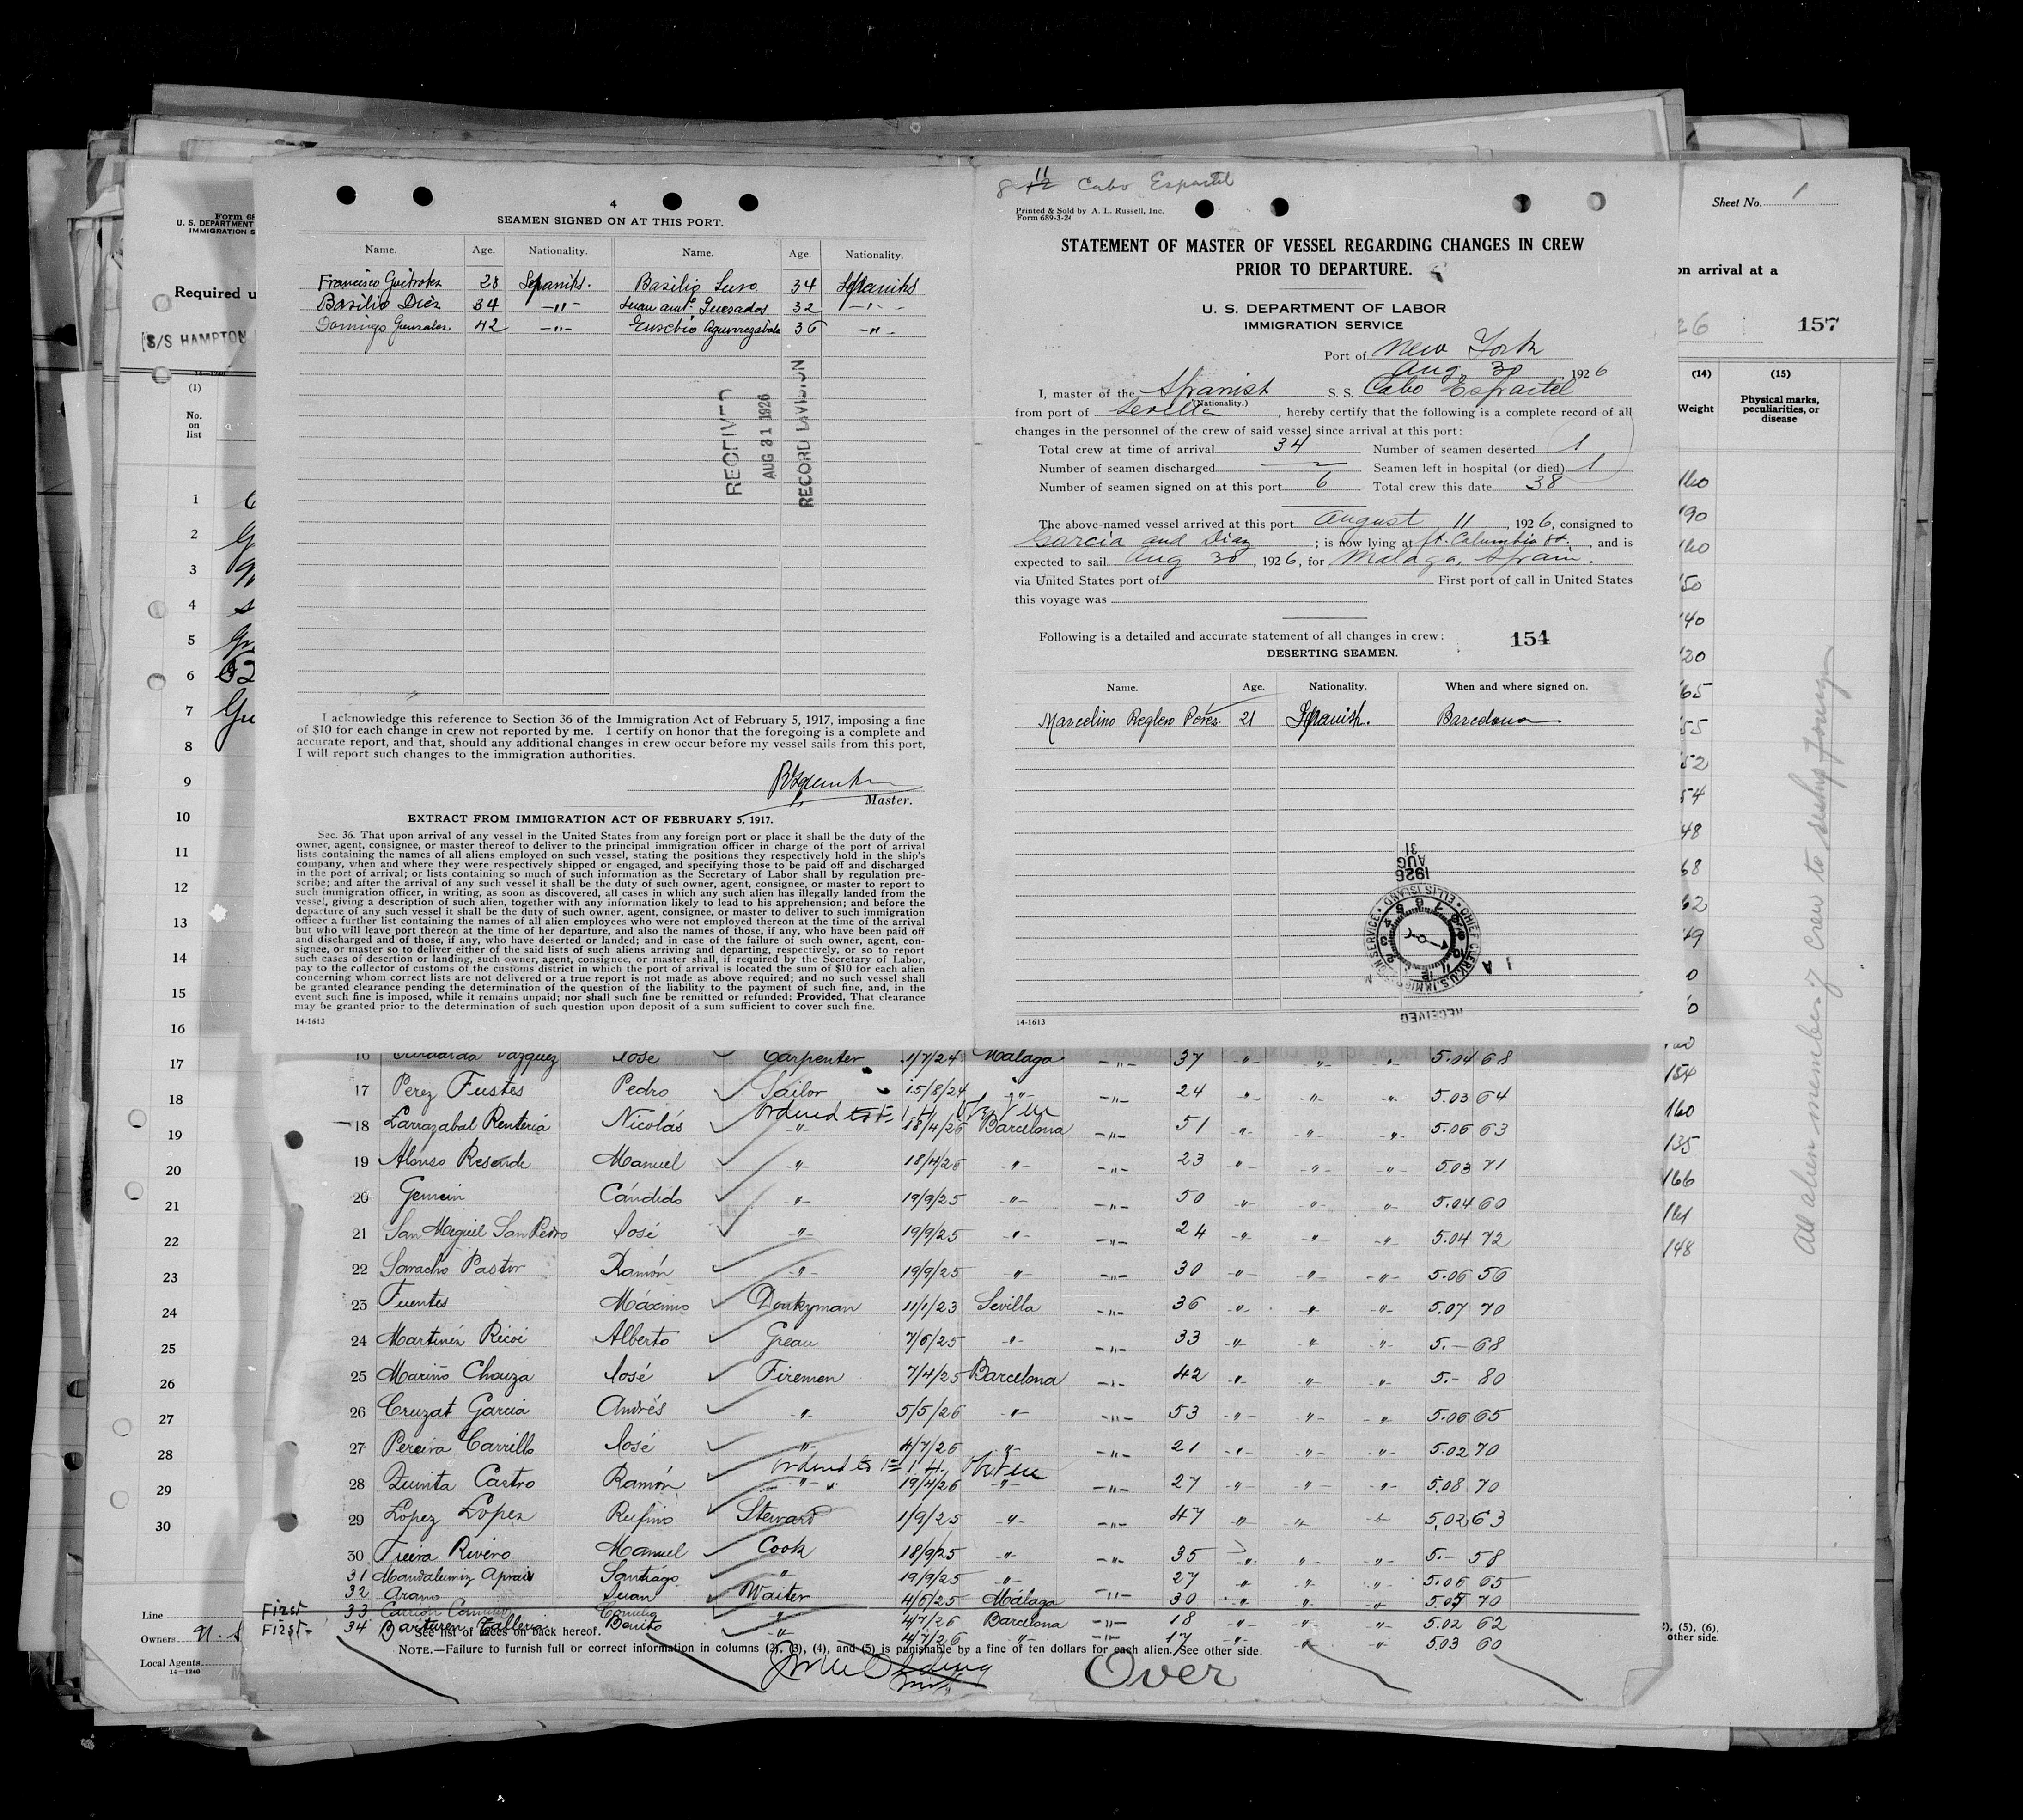 4
SEAMEN SIGNED ON AT THIS PORT.
Name. Age. Nationality. Name. Age. Nationality.
Francisco 28 Spanihs. Basilio Suso 34 Spanihs
Basilio Diez 34 -"- Juan antº Quesados 32 -"-
Domingo Gonzales 42 -"- Eusebio Aguirrezabala 36 -"-
RECEIVED
AUG 31 1926
RECORD DIVISION
I acknowledge this reference to Section 36 of the Immigration Act of February 5, 1917, imposing a fine
of $10 for each change in crew not reported by me. I certify on honor that the foregoing is a complete and
accurate report, and that, should any additional changes in crew occur before my vessel sails from this port,
I will report such changes to the immigration authorities.
Master.
EXTRACT FROM IMMIGRATION ACT OF FEBRUARY 5, 1917.
Sec. 36. That upon arrival of any vessel in the United States from any foreign port or place it shall be the duty of the
owner, agent, consignee, or master thereof to deliver to the principal immigration officer in charge of the port of arrival
lists containing the names of all aliens employed on such vessel, stating the positions they respectively hold in the ship's
company, when and where they were respectively shipped or engaged, and specifying those to be paid off and discharged
in the port of arrival; or lists containing so much of such information as the Secretary of Labor shall by regulation pre-
scribe; and after the arrival of any such vessel it shall be the duty of such owner, agent, consignee, or master to report to
such immigration officer, in writing, as soon as discovered, all cases in which any such alien has illegally landed from the
vessel, giving a description of such alien, together with any information likely to lead to his apprehension; and before the
departure of any such vessel it shall be the duty of such owner, agent, consignee, or master to deliver to such immigration
officer a further list containing the names of all alien employees who were not employed thereon at the time of the arrival
but who will leave port thereon at the time of her departure, and also the names of those, if any, who have been paid off
and discharged and of those, if any, who have deserted or landed; and in case of the failure of such owner, agent, con-
signee, or master so to deliver either of the said lists of such aliens arriving and departing, respectively, or so to report
such cases of desertion or landing, such owner, agent, consignee, or master shall, if required by the Secretary of Labor,
pay to the collector of customs of the customs district in which the port of arrival is located the sum of $10 for each alien
concerning whom correct lists are not delivered or a true report is not made as above required; and no such vessel shall
be granted clearance pending the determination of the question of the liability to the payment of such fine, and, in the
event such fine is imposed, while it remains unpaid; nor shall such fine be remitted or refunded: Provided, That clearance
may be granted prior to the determination of such question upon deposit of a sum sufficient to cover such fine.
14-1613
8 12 11 Cabo Espartel
Printed & Sold by A. L. Russell, Inc.
Form 689-3-24
STATEMENT OF MASTER OF VESSEL REGARDING CHANGES IN CREW
PRIOR TO DEPARTURE.
U. S. DEPARTMENT OF LABOR
IMMIGRATION SERVICE
Port of New York
Aug. 30 1926
I, master of the Spanish S. S. Cabo Espartel
(Nationality.)
from port of Sevilla, hereby certify that the following is a complete record of all
changes in the personnel of the crew of said vessel since arrival at this port:
Total crew at time of arrival 34 Number of seamen deserted 1
Number of seamen discharged — Seamen left in hospital (or died) 1
Number of seamen signed on at this port 6 Total crew this date 38
The above-named vessel arrived at this port August 11, 1926, consigned to
Garcia and Diaz; is now lying at ft. Columbia St., and is
expected to sail Aug 30, 1926, for Malaga, Spain.
via United States port of First port of call in United States
this voyage was
Following is a detailed and accurate statement of all changes in crew: 154
DESERTING SEAMEN.
Name. Age. Nationality. When and where signed on.
Marcelino Reglero Perez 21 Spanish. Barcelona
1926 AUG 31
CHIEF CLERK, U.S. IMMIGRATION SERVICE • ELLIS ISLAND
RECEIVED
14-1613
Form 68
U. S. DEPARTMENT
IMMIGRATION S
Required u
S/S HAMPTON
(1)
No.
on
list
1
2
3
4
5
6
7
8
9
10
11
12
13
14
15
16
17
18
19
20
21
22
23
24
25
26
27
28
29
30
Line
Owners
Local Agents
14-1240
Sheet No. 1
on arrival at a
26 157
(14) (15)
Weight Physical marks, peculiarities, or disease
160
190
160
150
140
120
165
155
152
154
148
168
162
149
0
0
154
160
135
166
161
148
All alien members of crew
16 Vazquez José Carpenter 1/7/24 Malaga -"- 37 -"- -"- -"- 5.04 68
17 Perez Fustes Pedro Sailor 15/8/24 -"- -"- 24 -"- -"- -"- 5.03 64
18 Larrazabal Renteria Nicolás -"- 18/4/26 Barcelona -"- 51 -"- -"- -"- 5.06 63
19 Alonso Resende Manuel -"- 18/4/26 -"- -"- 23 -"- -"- -"- 5.03 71
20 Gemein Cándido -"- 19/9/25 -"- -"- 50 -"- -"- -"- 5.04 60
21 San Miguel San Pedro José -"- 19/9/25 -"- -"- 24 -"- -"- -"- 5.04 72
22 Sarracho Pastor Ramón -"- 19/9/25 -"- -"- 30 -"- -"- -"- 5.06 56
23 Fuentes Máximo Donkyman 11/1/23 Sevilla -"- 36 -"- -"- -"- 5.07 70
24 Martinez Ricoi Alberto Greau 7/6/25 -"- -"- 33 -"- -"- -"- 5.- 68
25 Mariño Chouza José Firemen 7/4/25 Barcelona -"- 42 -"- -"- -"- 5.- 80
26 Cruzat Garcia Andrés -"- 5/5/26 -"- -"- 53 -"- -"- -"- 5.06 65
27 Pereira Carrillo José -"- 4/7/26 -"- -"- 21 -"- -"- -"- 5.02 70
28 Zunita Castro Ramón -"- 19/4/26 -"- -"- 27 -"- -"- -"- 5.08 70
29 Lopez Lopez Rufino Steward 1/9/25 -"- -"- 47 -"- -"- -"- 5.02 63
30 Rivero Manuel Cook 18/9/25 -"- -"- 35 -"- -"- -"- 5.- 58
31 Santiago -"- 19/9/25 -"- 27 -"- -"- -"- 5.06 65
32 Arano Juan Waiter 4/6/25 Málaga -"- 30 -"- -"- -"- 5.05 70
First 33 -"- 4/7/26 Barcelona -"- 18 -"- -"- -"- 5.02 62
First 34 Benito -"- 4/7/26 -"- -"- 17 -"- -"- -"- 5.03 60
See list of races on back hereof.
NOTE.—Failure to furnish full or correct information in columns (2), (3), (4), and (5) is punishable by a fine of ten dollars for each alien. See other side.
Over
), (5), (6).
other side.